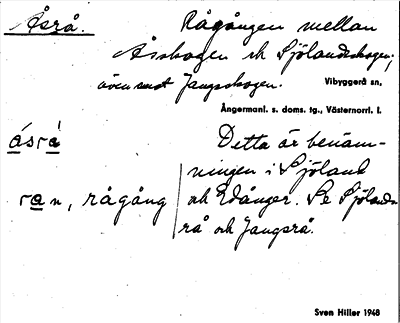 Åsrå. Rågången mellan
Åsskogen ok Sjölandsskogen;
även mot Jangsskogen. Vibyggerå sn,
Ångermanl. s. doms. tg., Västernorrl. l.
åsrå Detta är benäm-
ningen i Sjöland
ran, rågång ok Edånger. Se Sjölands-
rå och Jangsrå.
Sven Hiller 1948